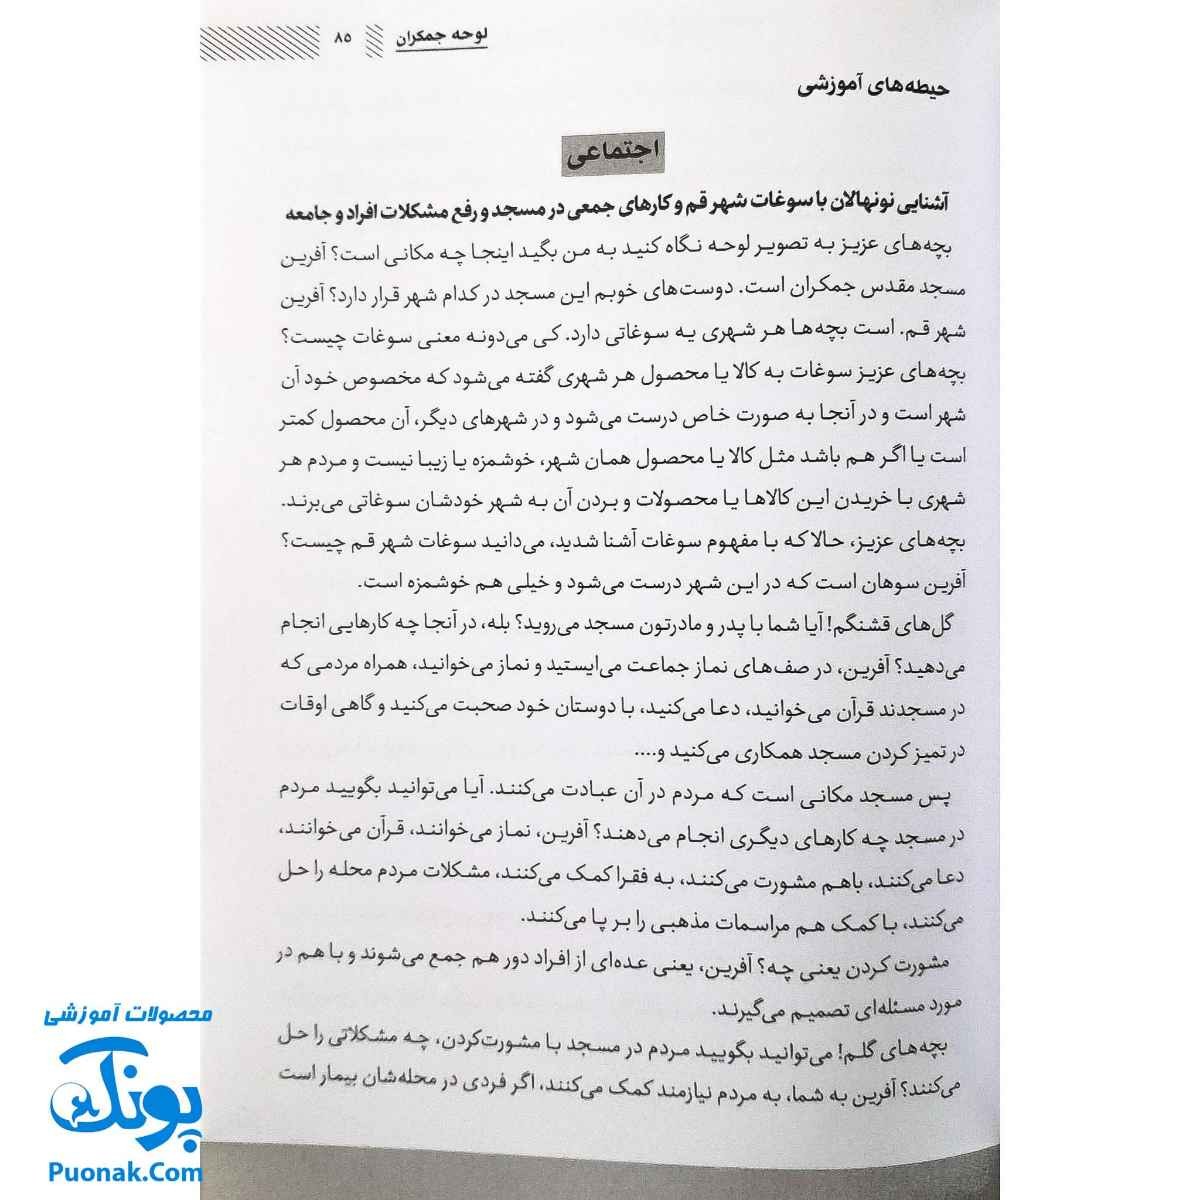 لوحه جمکران ۸۵
حیطه‌های آموزشی
اجتماعی
آشنایی نونهالان با سوغات شهر قم و کارهای جمعی در مسجد و رفع مشکلات افراد و جامعه
بچه‌های عزیز به تصویر لوحه نگاه کنید به من بگید اینجا چه مکانی است؟ آفرین
مسجد مقدس جمکران است. دوست‌های خوبم این مسجد در کدام شهر قرار دارد؟ آفرین
شهر قم. است بچه‌ها هر شهری یه سوغاتی دارد. کی می‌دونه معنی سوغات چیست؟
بچه‌های عزیز سوغات به کالا یا محصول هر شهری گفته می‌شود که مخصوص خود آن
شهر است و در آنجا به صورت خاص درست می‌شود و در شهرهای دیگر، آن محصول کمتر
است یا اگر هم باشد مثل کالا یا محصول همان شهر، خوشمزه یا زیبا نیست و مردم هر
شهری با خریدن این کالاها یا محصولات و بردن آن به شهر خودشان سوغاتی می‌برند.
بچه‌های عزیز، حالا که با مفهوم سوغات آشنا شدید، می‌دانید سوغات شهر قم چیست؟
آفرین سوهان است که در این شهر درست می‌شود و خیلی هم خوشمزه است.
گل‌های قشنگم! آیا شما با پدر و مادرتون مسجد می‌روید؟ بله، در آنجا چه کارهایی انجام
می‌دهید؟ آفرین، در صف‌های نماز جماعت می‌ایستید و نماز می‌خوانید، همراه مردمی که
در مسجدند قرآن می‌خوانید، دعا می‌کنید، با دوستان خود صحبت می‌کنید و گاهی اوقات
در تمیز کردن مسجد همکاری می‌کنید و....
پس مسجد مکانی است که مردم در آن عبادت می‌کنند. آیا می‌توانید بگویید مردم
در مسجد چه کارهای دیگری انجام می‌دهند؟ آفرین، نماز می‌خوانند، قرآن می‌خوانند،
دعا می‌کنند، باهم مشورت می‌کنند، به فقرا کمک می‌کنند، مشکلات مردم محله را حل
می‌کنند، با کمک هم مراسمات مذهبی را بر پا می‌کنند.
مشورت کردن یعنی چه؟ آفرین، یعنی عده‌ای از افراد دور هم جمع می‌شوند و با هم در
مورد مسئله‌ای تصمیم می‌گیرند.
بچه‌های گلم! می‌توانید بگویید مردم در مسجد با مشورت‌کردن، چه مشکلاتی را حل
می‌کنند؟ آفرین به شما، به مردم نیازمند کمک می‌کنند، اگر فردی در محله‌شان بیمار است
محصولات آموزشی
پونک
Puonak.Com